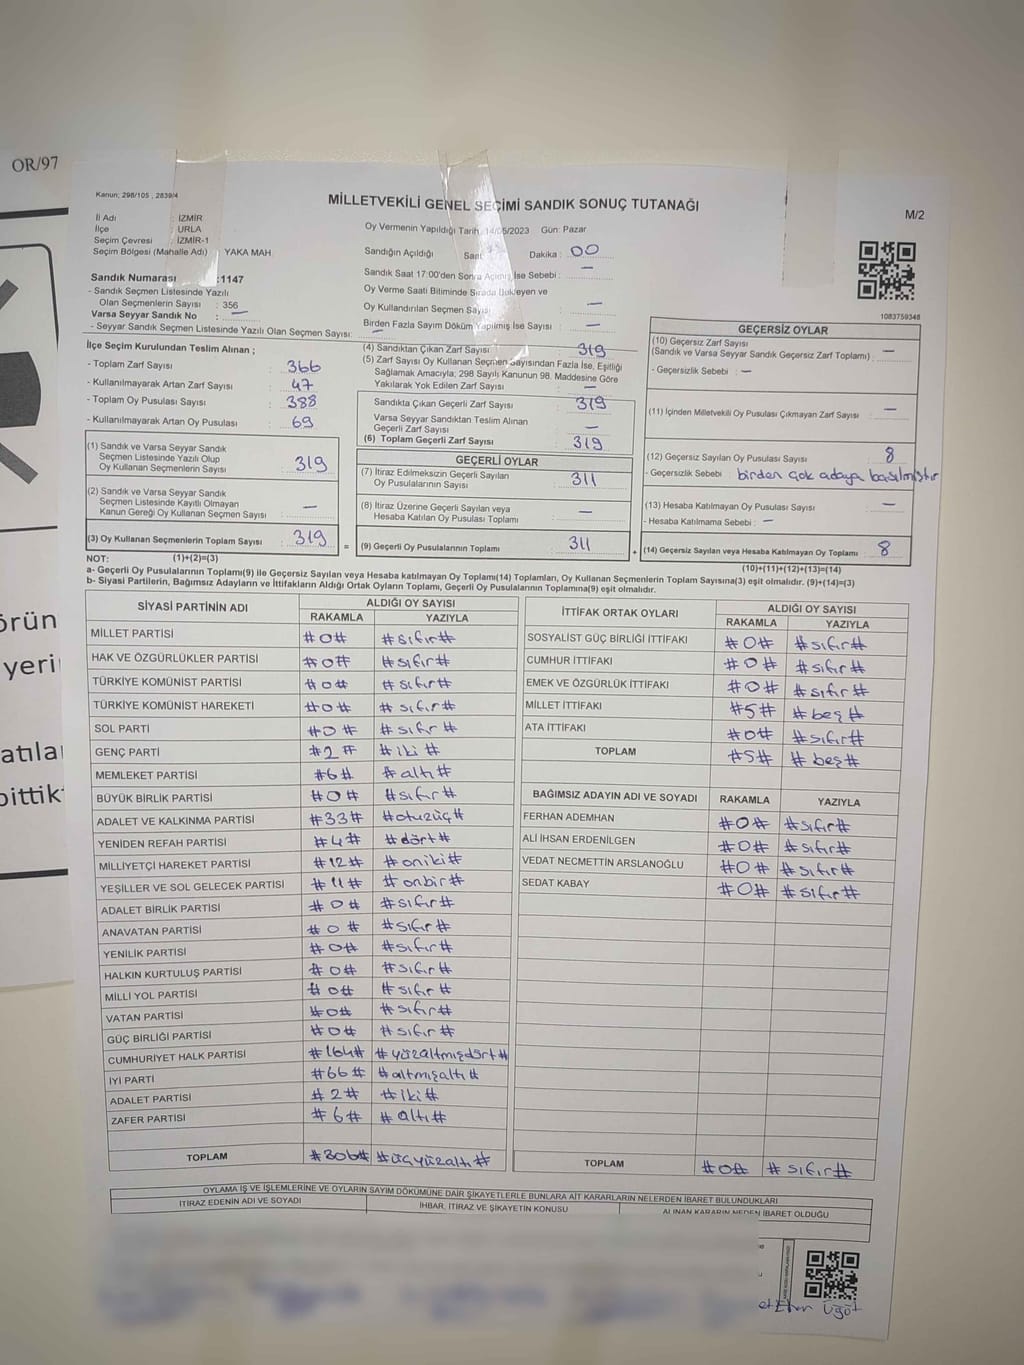 OR/97
örün
yeri
atıla
bittik
Kanun: 298/105 , 2839/4
MİLLETVEKİLİ GENEL SEÇİMİ SANDIK SONUÇ TUTANAĞI
M/2
İl Adı : İZMİR
İlçe : URLA
Seçim Çevresi : İZMİR-1
Seçim Bölgesi (Mahalle Adı) : YAKA MAH
Sandık Numarası :1147
- Sandık Seçmen Listesinde Yazılı
Olan Seçmenlerin Sayısı : 356
Varsa Seyyar Sandık No : —
- Seyyar Sandık Seçmen Listesinde Yazılı Olan Seçmen Sayısı: —
Oy Vermenin Yapıldığı Tarih 14/05/2023 Gün: Pazar
Sandığın Açıldığı Saat Dakika : 00
Sandık Saat 17:00'den Sonra Açılmış İse Sebebi : —
Oy Verme Saati Bitiminde Sırada Bekleyen ve
Oy Kullandırılan Seçmen Sayısı —
Birden Fazla Sayım Döküm Yapılmış İse Sayısı : —
1083759348
İlçe Seçim Kurulundan Teslim Alınan ;
- Toplam Zarf Sayısı : 366
- Kullanılmayarak Artan Zarf Sayısı : 47
- Toplam Oy Pusulası Sayısı : 388
- Kullanılmayarak Artan Oy Pusulası : 69
(1) Sandık ve Varsa Seyyar Sandık
Seçmen Listesinde Yazılı Olup
Oy Kullanan Seçmenlerin Sayısı : 319
(2) Sandık ve Varsa Seyyar Sandık
Seçmen Listesinde Kayıtlı Olmayan
Kanun Gereği Oy Kullanan Seçmen Sayısı : —
(3) Oy Kullanan Seçmenlerin Toplam Sayısı : 319
NOT: (1)+(2)=(3)
(4) Sandıktan Çıkan Zarf Sayısı : 319
(5) Zarf Sayısı Oy Kullanan Seçmen Sayısından Fazla İse, Eşitliği
Sağlamak Amacıyla; 298 Sayılı Kanunun 98. Maddesine Göre
Yakılarak Yok Edilen Zarf Sayısı : —
Sandıkta Çıkan Geçerli Zarf Sayısı : 319
Varsa Seyyar Sandıktan Teslim Alınan
Geçerli Zarf Sayısı : —
(6) Toplam Geçerli Zarf Sayısı : 319
GEÇERLİ OYLAR
(7) İtiraz Edilmeksizin Geçerli Sayılan
Oy Pusulalarının Sayısı : 311
(8) İtiraz Üzerine Geçerli Sayılan veya
Hesaba Katılan Oy Pusulası Toplamı : —
= (9) Geçerli Oy Pusulalarının Toplamı : 311
GEÇERSİZ OYLAR
(10) Geçersiz Zarf Sayısı
(Sandık ve Varsa Seyyar Sandık Geçersiz Zarf Toplamı) : —
- Geçersizlik Sebebi : —
(11) İçinden Milletvekili Oy Pusulası Çıkmayan Zarf Sayısı : —
(12) Geçersiz Sayılan Oy Pusulası Sayısı : 8
- Geçersizlik Sebebi : birden çok adaya basılmıştır
(13) Hesaba Katılmayan Oy Pusulası Sayısı : —
- Hesaba Katılmama Sebebi : —
+ (14) Geçersiz Sayılan veya Hesaba Katılmayan Oy Toplamı : 8
(10)+(11)+(12)+(13)=(14)
a- Geçerli Oy Pusulalarının Toplamı(9) ile Geçersiz Sayılan veya Hesaba katılmayan Oy Toplamı(14) Toplamları, Oy Kullanan Seçmenlerin Toplam Sayısına(3) eşit olmalıdır. (9)+(14)=(3)
b- Siyasi Partilerin, Bağımsız Adayların ve İttifakların Aldığı Ortak Oyların Toplamı, Geçerli Oy Pusulalarının Toplamına(9) eşit olmalıdır.
SİYASİ PARTİNİN ADI ALDIĞI OY SAYISI
RAKAMLA YAZIYLA
MİLLET PARTİSİ #0# #sıfır#
HAK VE ÖZGÜRLÜKLER PARTİSİ #0# #sıfır#
TÜRKİYE KOMÜNİST PARTİSİ #0# #sıfır#
TÜRKİYE KOMÜNİST HAREKETİ #0# #sıfır#
SOL PARTİ #0# #sıfır#
GENÇ PARTİ #2# #iki#
MEMLEKET PARTİSİ #6# #altı#
BÜYÜK BİRLİK PARTİSİ #0# #sıfır#
ADALET VE KALKINMA PARTİSİ #33# #otuzüç#
YENİDEN REFAH PARTİSİ #4# #dört#
MİLLİYETÇİ HAREKET PARTİSİ #12# #oniki#
YEŞİLLER VE SOL GELECEK PARTİSİ #11# #onbir#
ADALET BİRLİK PARTİSİ #0# #sıfır#
ANAVATAN PARTİSİ #0# #sıfır#
YENİLİK PARTİSİ #0# #sıfır#
HALKIN KURTULUŞ PARTİSİ #0# #sıfır#
MİLLİ YOL PARTİSİ #0# #sıfır#
VATAN PARTİSİ #0# #sıfır#
GÜÇ BİRLİĞİ PARTİSİ #0# #sıfır#
CUMHURİYET HALK PARTİSİ #164# #yüzaltmışdört#
İYİ PARTİ #66# #altmışaltı#
ADALET PARTİSİ #2# #iki#
ZAFER PARTİSİ #6# #altı#
TOPLAM #306# #üçyüzaltı#
İTTİFAK ORTAK OYLARI ALDIĞI OY SAYISI
RAKAMLA YAZIYLA
SOSYALİST GÜÇ BİRLİĞİ İTTİFAKI #0# #sıfır#
CUMHUR İTTİFAKI #0# #sıfır#
EMEK VE ÖZGÜRLÜK İTTİFAKI #0# #sıfır#
MİLLET İTTİFAKI #5# #beş#
ATA İTTİFAKI #0# #sıfır#
TOPLAM #5# #beş#
BAĞIMSIZ ADAYIN ADI VE SOYADI RAKAMLA YAZIYLA
FERHAN ADEMHAN #0# #sıfır#
ALİ İHSAN ERDENİLGEN #0# #sıfır#
VEDAT NECMETTİN ARSLANOĞLU #0# #sıfır#
SEDAT KABAY #0# #sıfır#
TOPLAM #0# #sıfır#
OYLAMA İŞ VE İŞLEMLERİNE VE OYLARIN SAYIM DÖKÜMÜNE DAİR ŞİKAYETLERLE BUNLARA AİT KARARLARIN NELERDEN İBARET BULUNDUKLARI
İTİRAZ EDENİN ADI VE SOYADI İHBAR, İTİRAZ VE ŞİKAYETİN KONUSU ALINAN KARARIN NEDEN İBARET OLDUĞU